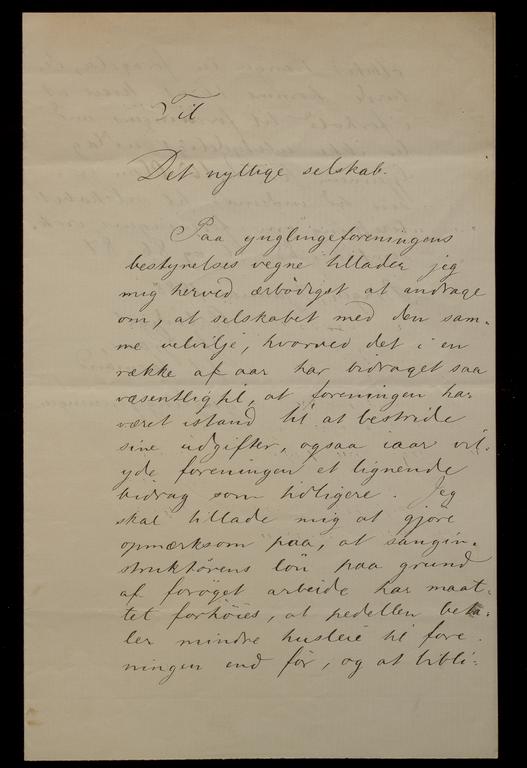 Til
Det nyttige selskab.
Paa ynglingeforeningens
bestyrelses vegne tillader jeg
mig herved ærbödigst at andrage
om, at selskabet med den sam-
me velvilje, hvorved det i en
række af aar har bidraget saa
væsentligt til, at foreningen har
været istand til at bestride
sine udgifter, ogsaa iaar vil
yde foreningen et lignende
bidrag som tidligere. Jeg
skal tillade mig at gjöre
opmærksom paa, at sangin-
struktörens lön paa grund
af foröget arbeide har maat-
tet forhöies, at pedellen beta-
ler mindre husleie til fore-
ningen end för, og at bibli-